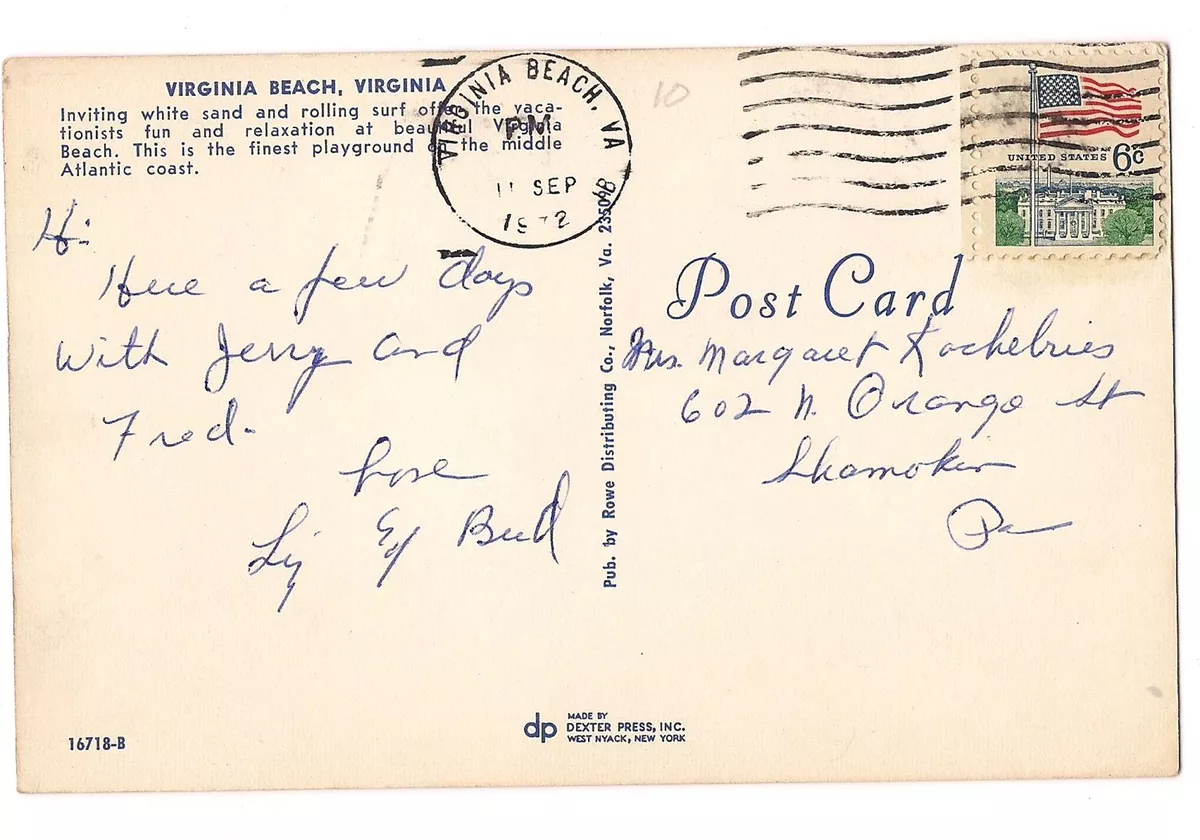 VIRGINIA BEACH, VIRGINIA
Inviting white sand and rolling surf offer the vaca-
tionists fun and relaxation at beautiful Virginia
Beach. This is the finest playground on the middle
Atlantic coast.
VIRGINIA BEACH, VA
PM
11 SEP
1972
10
UNITED STATES 6c
Hi:
Here a few days
with Jerry and
Fred.
Love
Liz Ed Bud
Pub. by Rowe Distributing Co., Norfolk, Va. 23504
Post Card
Mrs. Margaret
602 N. Orange St
Shamokin
Pa
16718-B
dp
MADE BY
DEXTER PRESS, INC.
WEST NYACK, NEW YORK